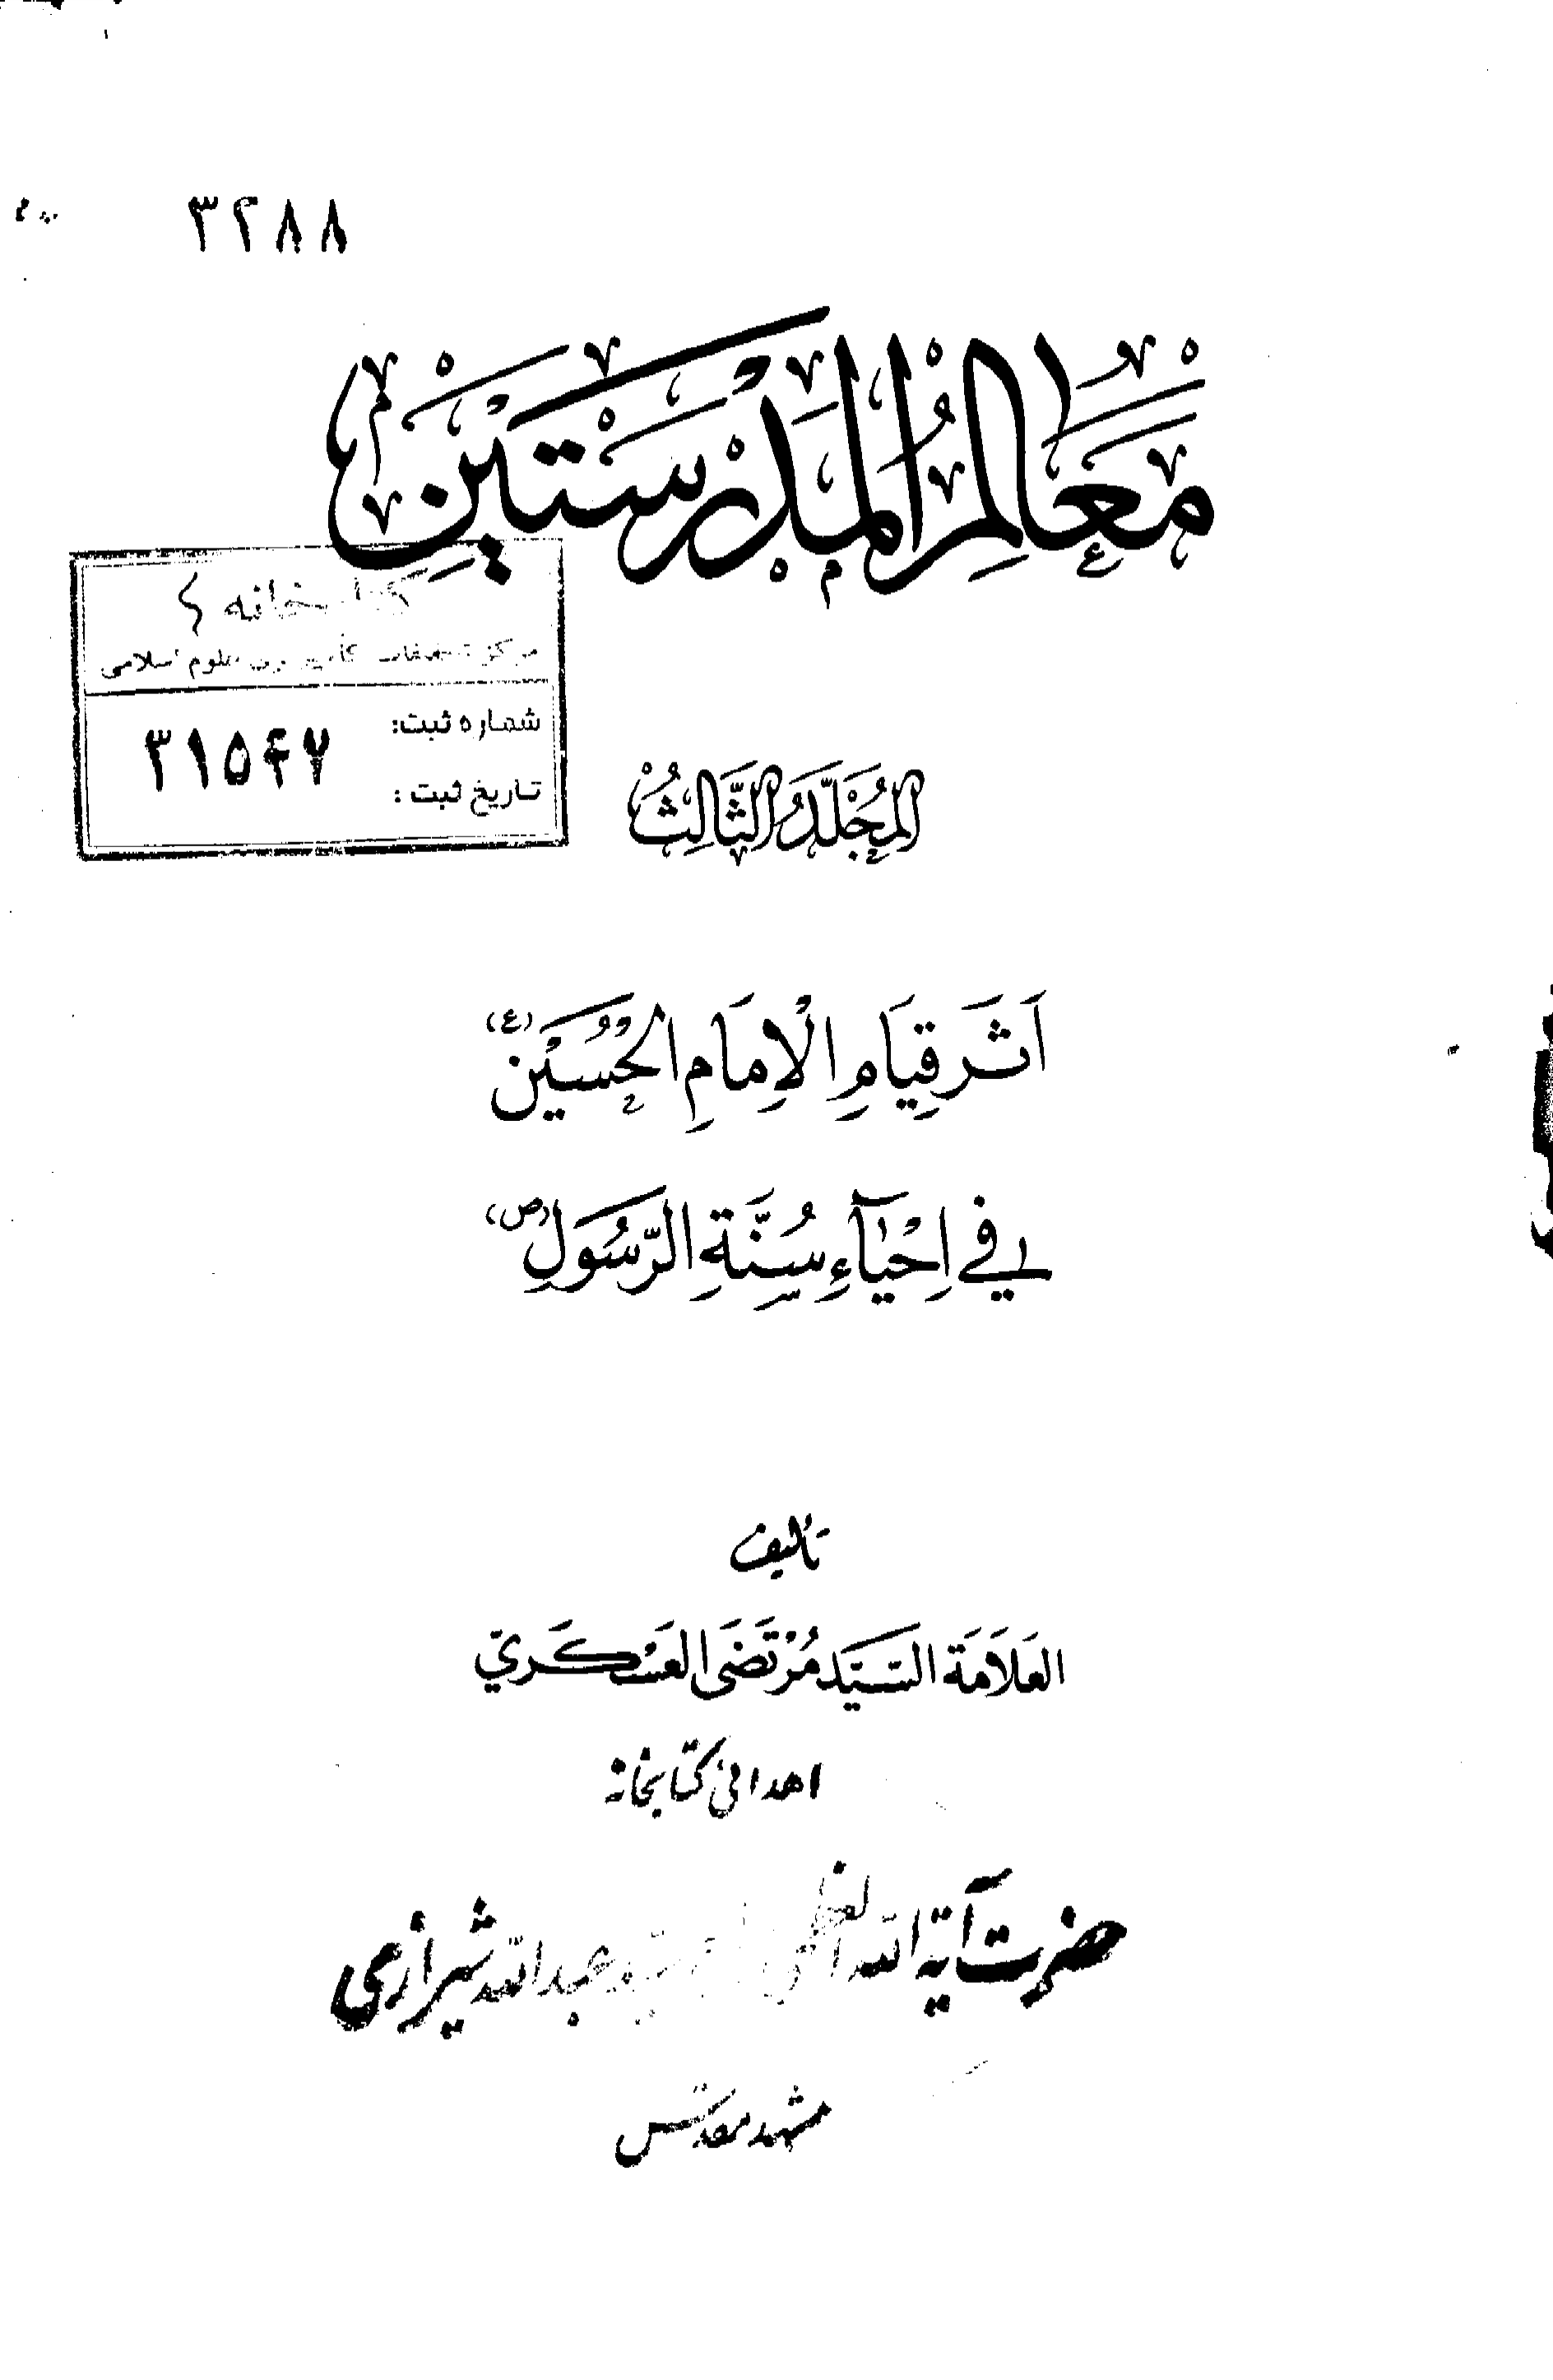 ۳۲۸۸
مَعَالِمُ الْمَدْرَسَتَيْنِ
کتابخانه
مرکز تحقیقات کامپیوتری علوم اسلامی
شماره ثبت: ۳۱۵۴۷
تاریخ ثبت :
المُجَلَّدُ الثَّالِثُ
اَثَر قِيَامِ الْاِمَامِ الْحُسَيْن (ع)
في اِحْيَآءِ سُنَّةِ الرَّسُولِ (ص)
تأليف
العَلاَمَة السَّيَّد مُرْتَضَى العَسْكَريّ
اهدائی کتابخانه
حضرت آیة الله العظمی سید عبدالله شیرازی
مشهد مقدس